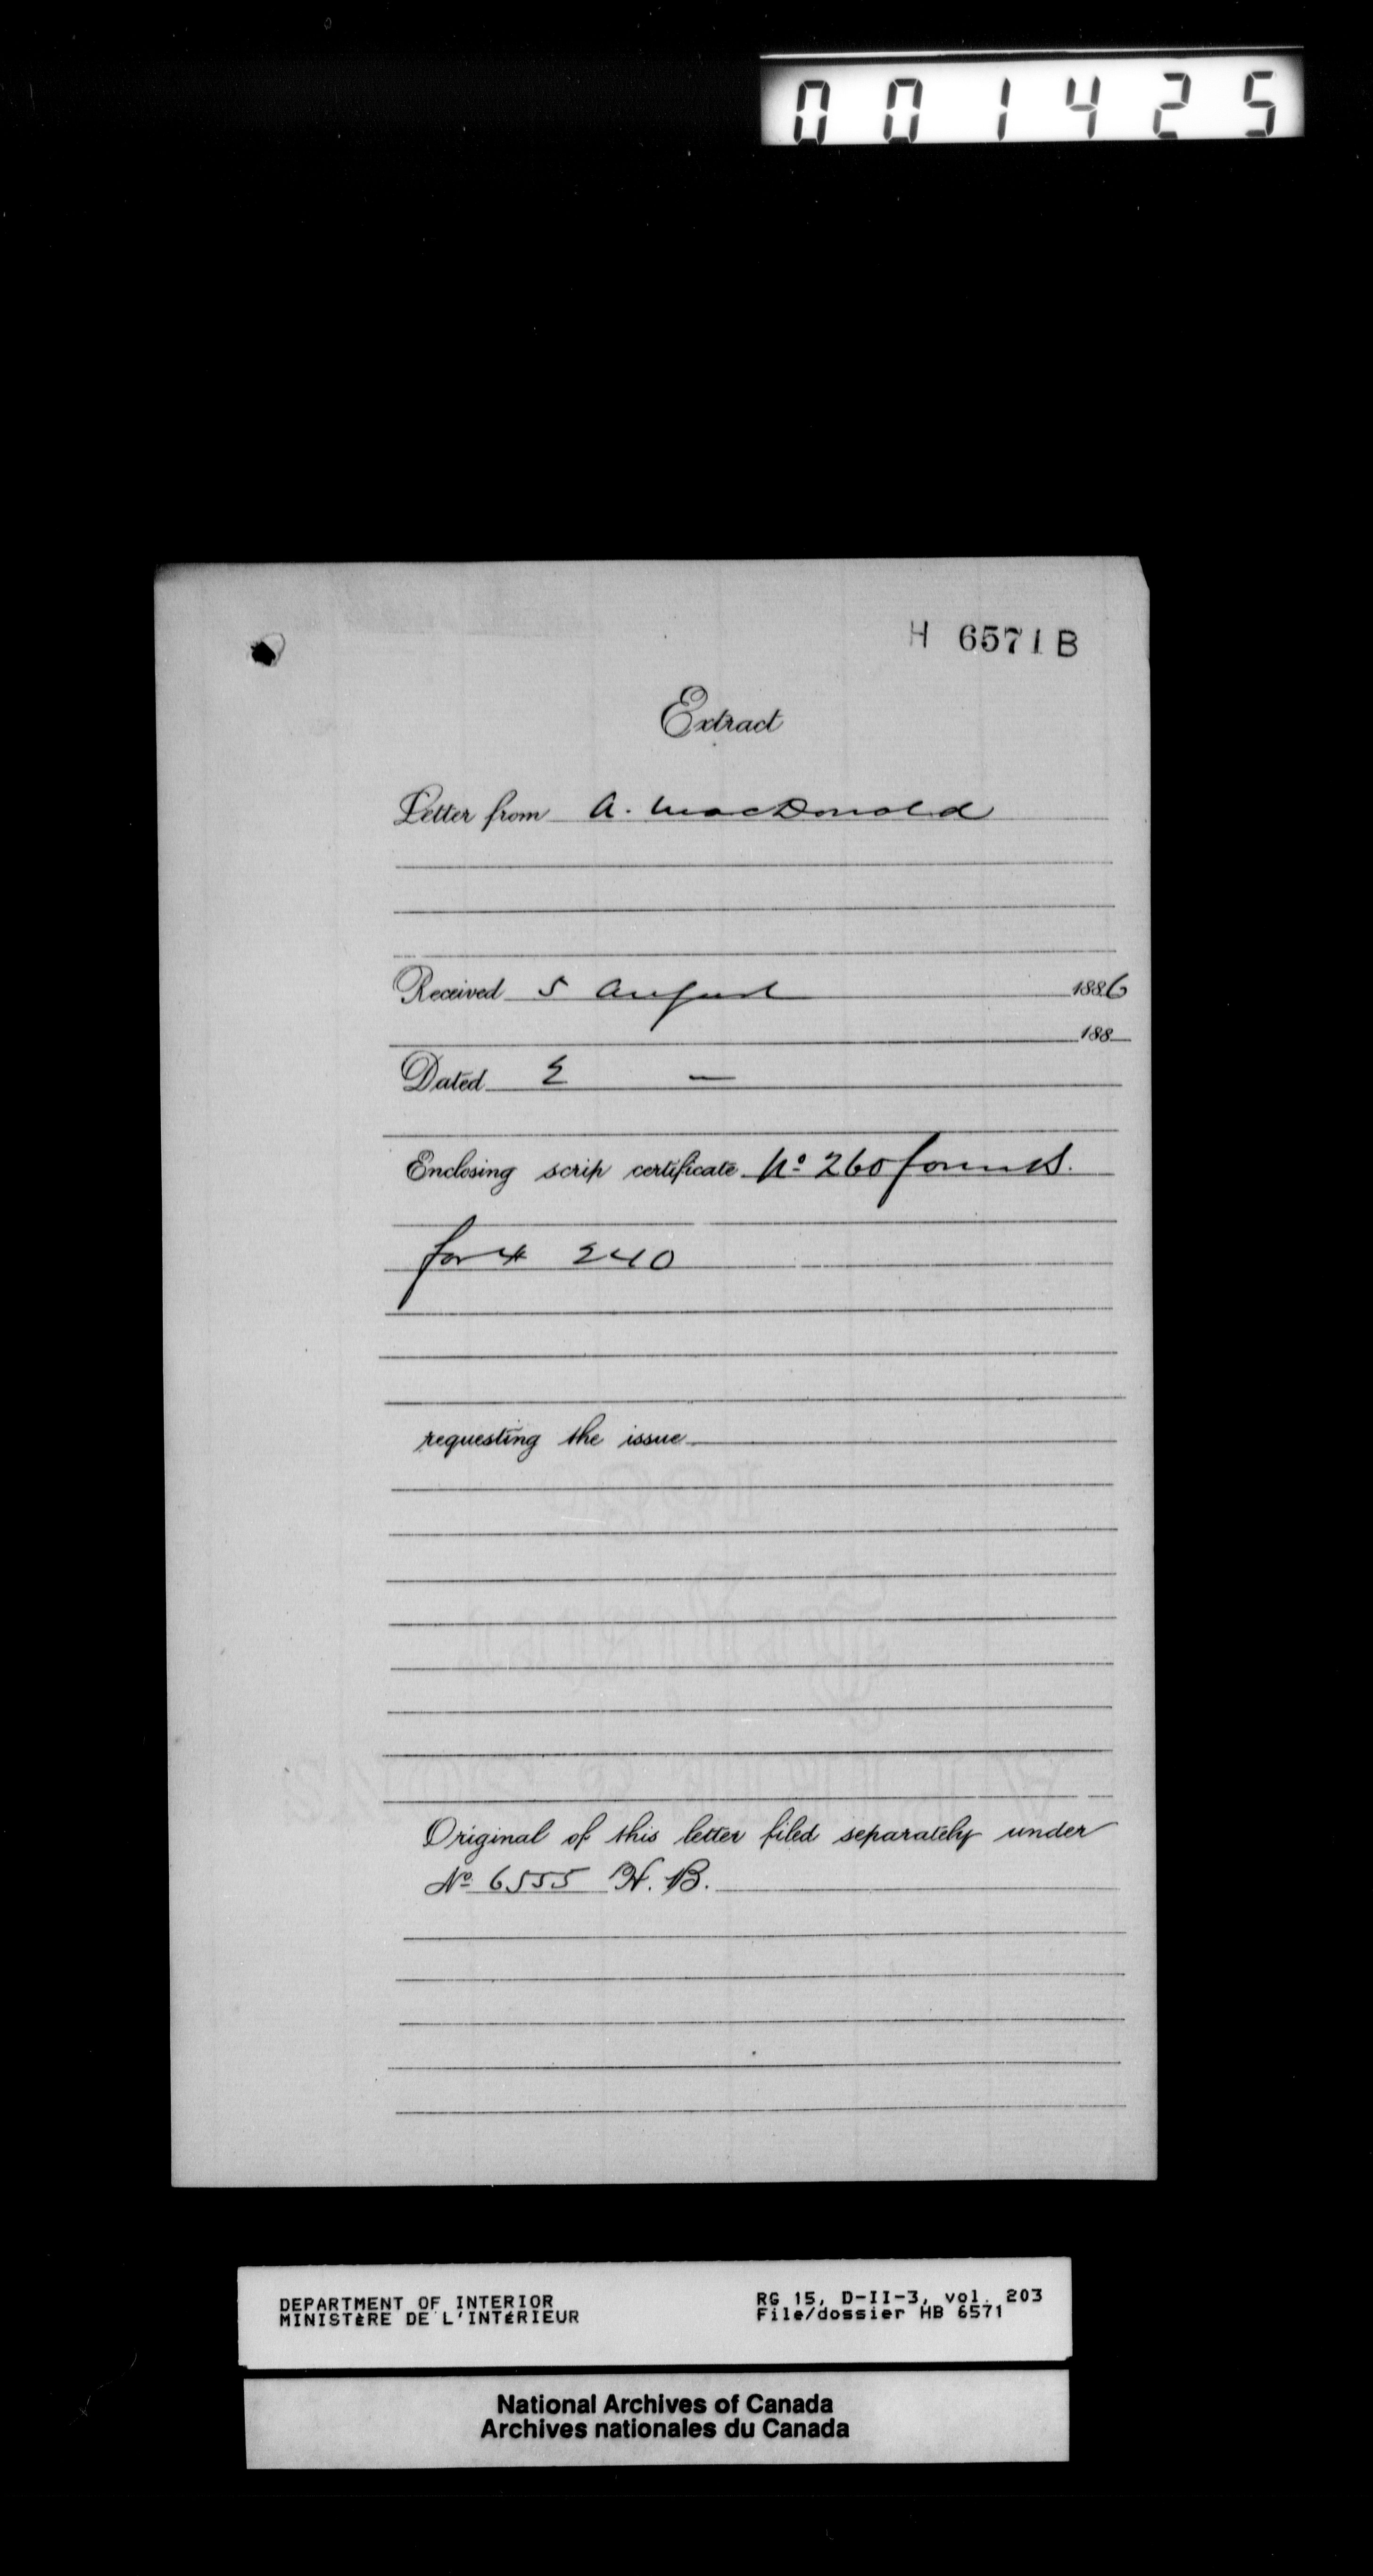 001425
H 6571 B
Extract
Letter from A. MacDonald
Received 5 August 1886
188
Dated 2 —
Enclosing scrip certificate No 260 form
for $ 240
requesting the issue
Original of this letter filed separately under
No 6555 H. B.
DEPARTMENT OF INTERIOR
MINISTÈRE DE L'INTÉRIEUR
RG 15, D-II-3, vol. 203
File/dossier HB 6571
National Archives of Canada
Archives nationales du Canada